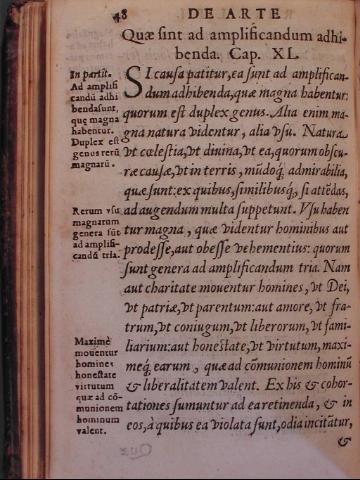 48 DE ARTE
Quæ sint ad amplificandum adhi-
benda. Cap. XL.
In partit.
Ad amplifi
candū adhi
bendasunt,
quę magna
habentur.
Duplex est
genus rerū
magnarū.
SI causa patitur, ea sunt ad amplifican-
dum adhibenda, quæ magna habentur:
quorum est duplex genus. Alia enim ma-
gna natura videntur, alia vsu. Natura
vt cœlestia, vt diuina, vt ea, quorum obscu-
ræ causæ, vt in terris, mūdoq́; admirabilia,
quæ sunt: ex quibus, similibusq́;, si attēdas,
ad augendum multa suppetunt. Vsu haben
tur magna, quæ videntur hominibus aut
prodesse, aut obesse vehementius: quorum
sunt genera ad amplificandum tria. Nam
aut charitate mouentur homines, vt Dei,
vt patriæ, vt parentum: aut amore, vt fra-
trum, vt coniugum, vt liberorum, vt fami-
liarium: aut honestate, vt virtutum, maxi-
meq́; earum, quæ ad cōmunionem hominū
& liberalitatem valent. Ex his & cohor-
tationes sumuntur ad ea retinenda, & in
eos, à quibus ea violata sunt, odia incitātur,
&
Rerum vsu
magnarum
genera sūt
ad amplifi-
candū tria.
Maximè
mouentur
homines
honestate
virtutum
quæ ad cō-
munionem
hominum
valent.